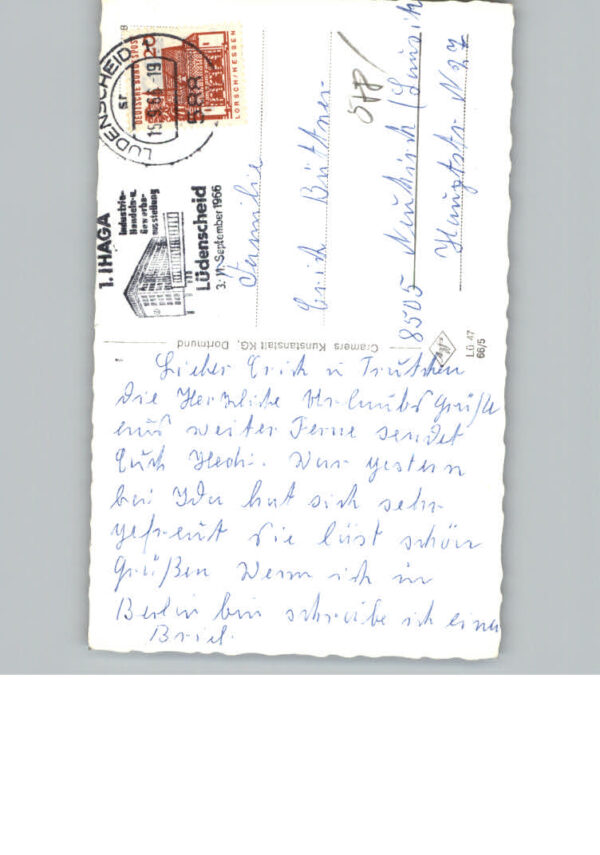 Lieber Erich u Trutchen
die Herzliche Urlaubs Grüße
aus weiter Ferne sendet
Euch Hedi. War gestern
bei Ida hat sich sehr
gefreut sie läst schön
Grüßen Wenn ich in
Berlin bin schreibe ich einen
Brief.
Familie
Erich Büttner
8505 Neukirch (Lausitz
Hauptstr. N 27
LÜDENSCHEID
DEUTSCHE BUNDESPOST
20
LORSCH/HESSEN
1. IHAGA
Industrie-
Handels-u.
Gewerbe-
ausstellung
Lüdenscheid
3.-11. September 1966
Cramers Kunstanstalt KG, Dortmund
LÜ 47
66/5